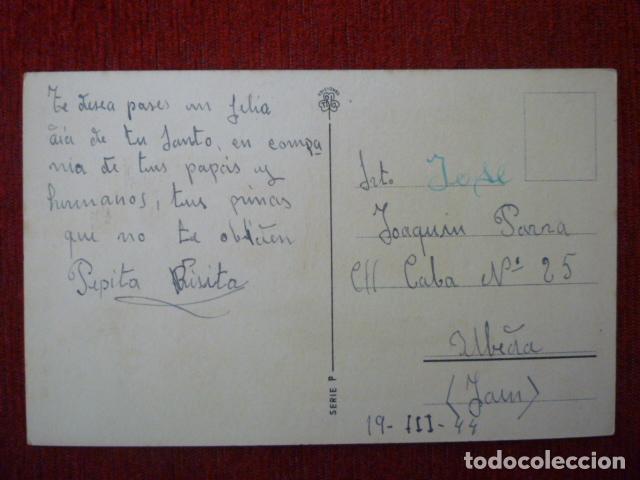 Te desea pases un feliz
día de tu Santo, en compa
nia de tus papás y
hermanos, tus primas
que no te olviden
Pepita Risita
EDICIONES
SERIE P
Srto. Jose
Joaquin Parra
C/ Caba Nº 25
Ubeda
(Jaen)
19-III-44
todocoleccion.net